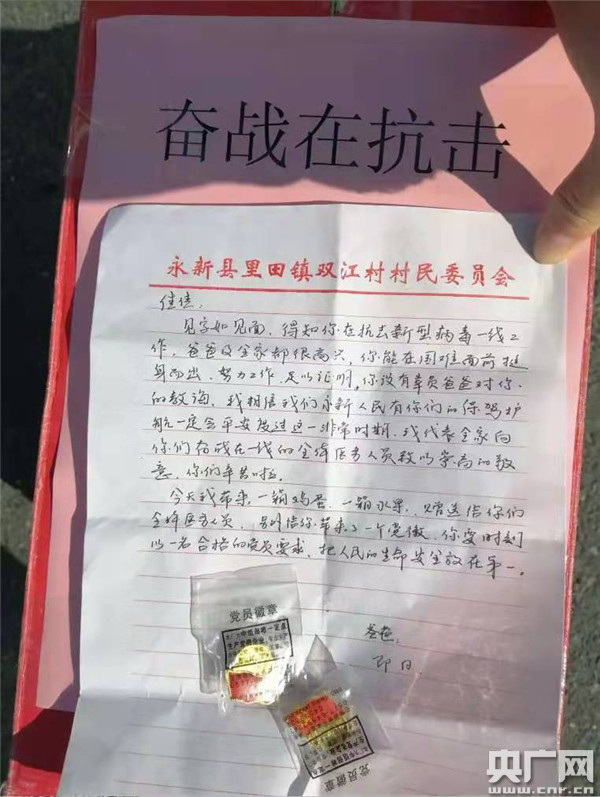 奋战在抗击
永新县里田镇双江村村民委员会
佳佳：
见字如见面，得知你在抗击新型病毒一线工
作，爸爸及全家都很高兴，你能在国难面前挺
身而出，努力工作，足以证明，你没有辜负爸爸对你
的教诲，我相信我们永新人民有你们的保驾护
航一定会平安渡过这一非常时期，我代表全家向
你们奋战在一线的全体医务人员致以崇高的敬
意，你们辛苦啦。
今天我带来一箱鸡蛋，一箱水果，赠送给你们
全体医务人员，另外给你带来了一个党徽，你要时刻
以一名合格的党员要求，把人民的生命安全放在第一。
爸爸，
即日
党员徽章
党员徽章
央广网
www.cnr.cn